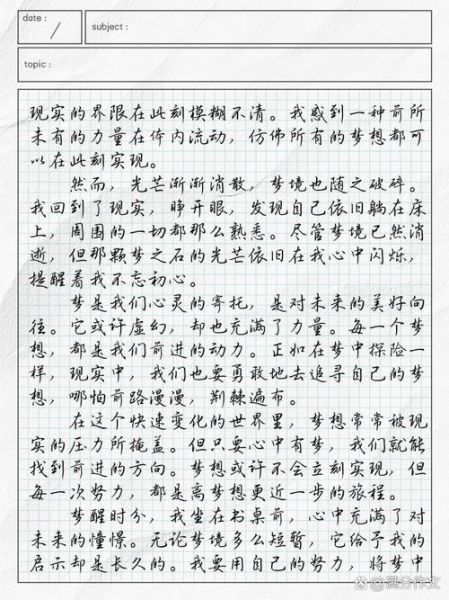 date :
subject :
topic :
现实的界限在此刻模糊不清。我感到一种前所
未有的力量在体内流动，仿佛所有的梦想都可
以在此刻实现。
然而，光芒渐渐消散，梦境也随之破碎。
我回到了现实，睁开眼，发现自己依旧躺在床
上，周围的一切都那么熟悉。尽管梦境已然消
逝，但那颗梦之石的光芒依旧在我心中闪烁，
提醒着我不忘初心。
梦是我们心灵的寄托，是对未来的美好向
往。它或许虚幻，却也充满了力量。每一个梦
想，都是我们前进的动力。正如在梦中探险一
样，现实中，我们也要勇敢地去追寻自己的梦
想，哪怕前路漫漫，荆棘遍布。
在这个快速变化的世界里，梦想常常被现
实的压力所掩盖。但只要心中有梦，我们就能
找到前进的方向。梦想或许不会立刻实现，但
每一次努力，都是离梦想更近一步的旅程。
梦醒时分，我坐在书桌前，心中充满了对
未来的憧憬。无论梦境多么短暂，它给予我的
启示却是长久的。我要用自己的努力，将梦中
满分作文